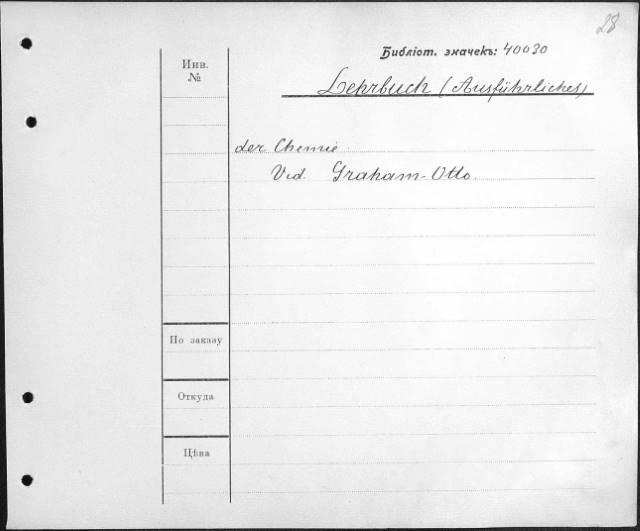 28
Библіот. значекъ: 40030
Инв.
№
Lehrbuch (Ausführliches)
der Chemie
Vid. Graham-Otto.
По заказу
Откуда
Цѣна